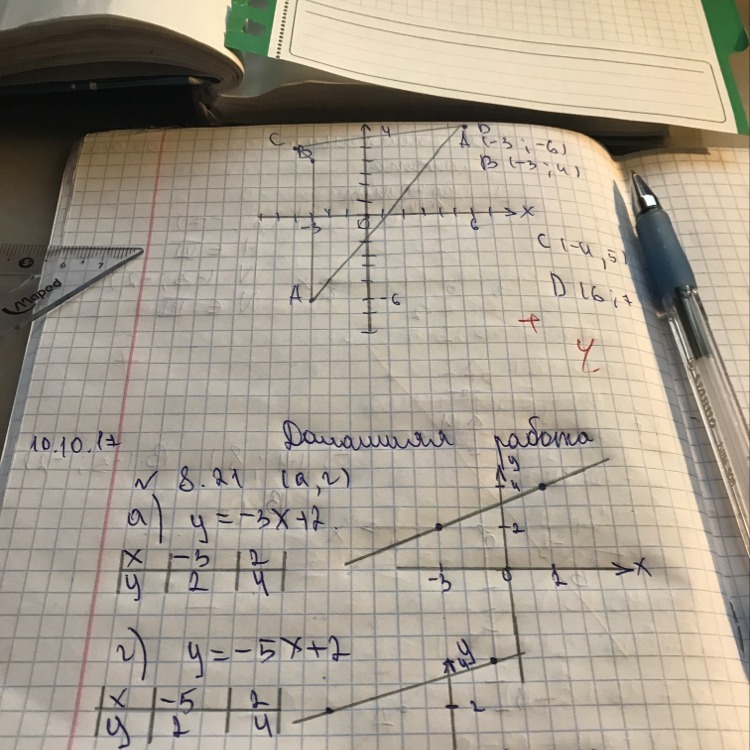 C
B
4
D
A (-3; -6)
B (-3; 4)
-3
0
6
X
C (-4, 5)
D (6; 7
A
-6
Maped
+
10.10.17
Домашняя работа
N 8.21 (а,г)
а) y = -3x+2
x -3 2
y 2 4
y
4
2
-3 0 2 X
г) y = -5x+2
x -5 2
y 2 4
y
4
2